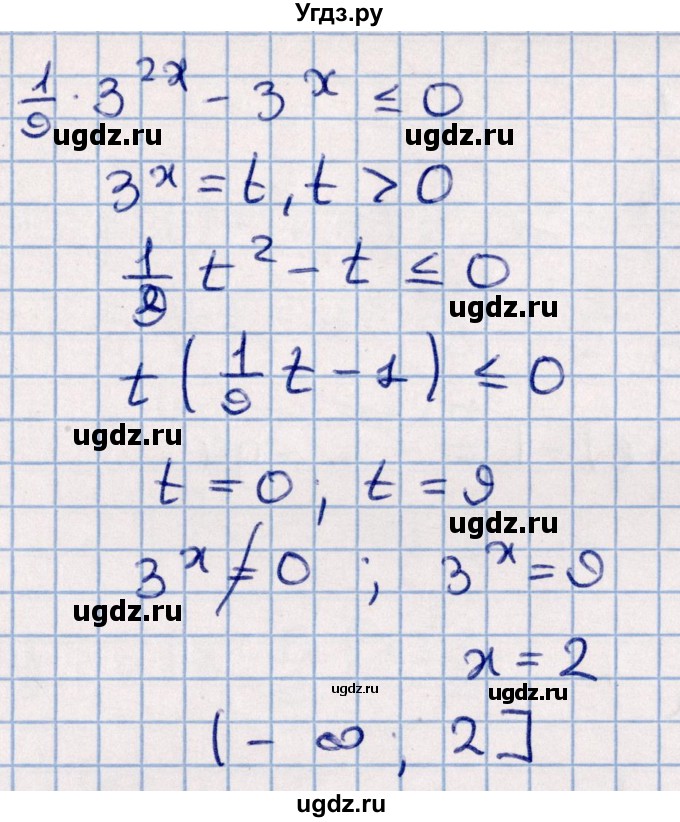 Угдз.ру
1/9 · 3^(2x) - 3^x ≤ 0
ugdz.ru ugdz.ru
3^x = t, t > 0
1/9 t^2 - t ≤ 0
ugdz.ru
t (1/9 t - 1) ≤ 0
ugdz.ru
t = 0, t = 9
ugdz.ru
3^x ≠ 0 ; 3^x = 9
ugdz.ru
x = 2
ugdz.ru ugdz.ru
(- ∞ ; 2]
ugdz.ru